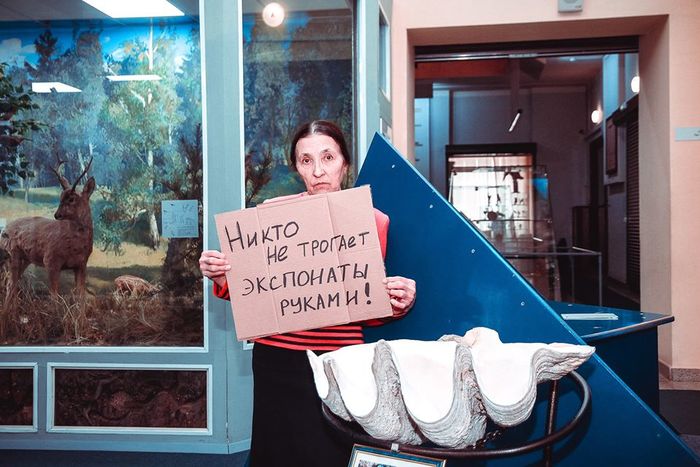 Никто
не трогает
экспонаты
руками!